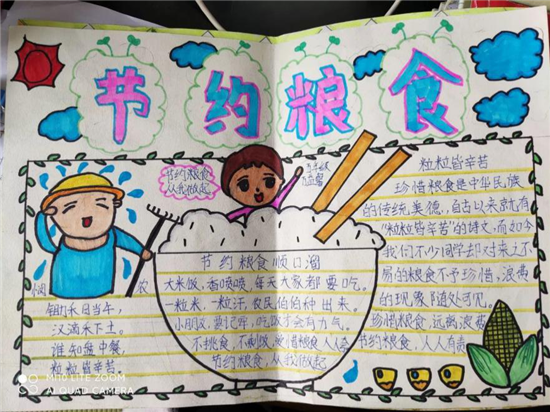 节约粮食
节约粮食
从我做起
悯农
锄禾日当午,
汗滴禾下土。
谁知盘中餐,
粒粒皆辛苦。
节约粮食顺口溜
大米饭,香喷喷,每天大家都要吃。
一粒米,一粒汗,农民伯伯种出来。
小朋友,要记牢,吃饭才会有力气。
不挑食,不剩饭,珍惜粮食人人
节约粮食,从我做起
粒粒皆辛苦
珍惜粮食是中华民族
的传统美德,自古以来就有
“粒粒皆辛苦”的诗文,而如今
我们不少同学却对来之不
易的粮食不予珍惜,浪费
的现象随处可见。
珍惜粮食,远离浪费
节约粮食,人人有责
MI 10 LITE ZOOM
AI QUAD CAMERA